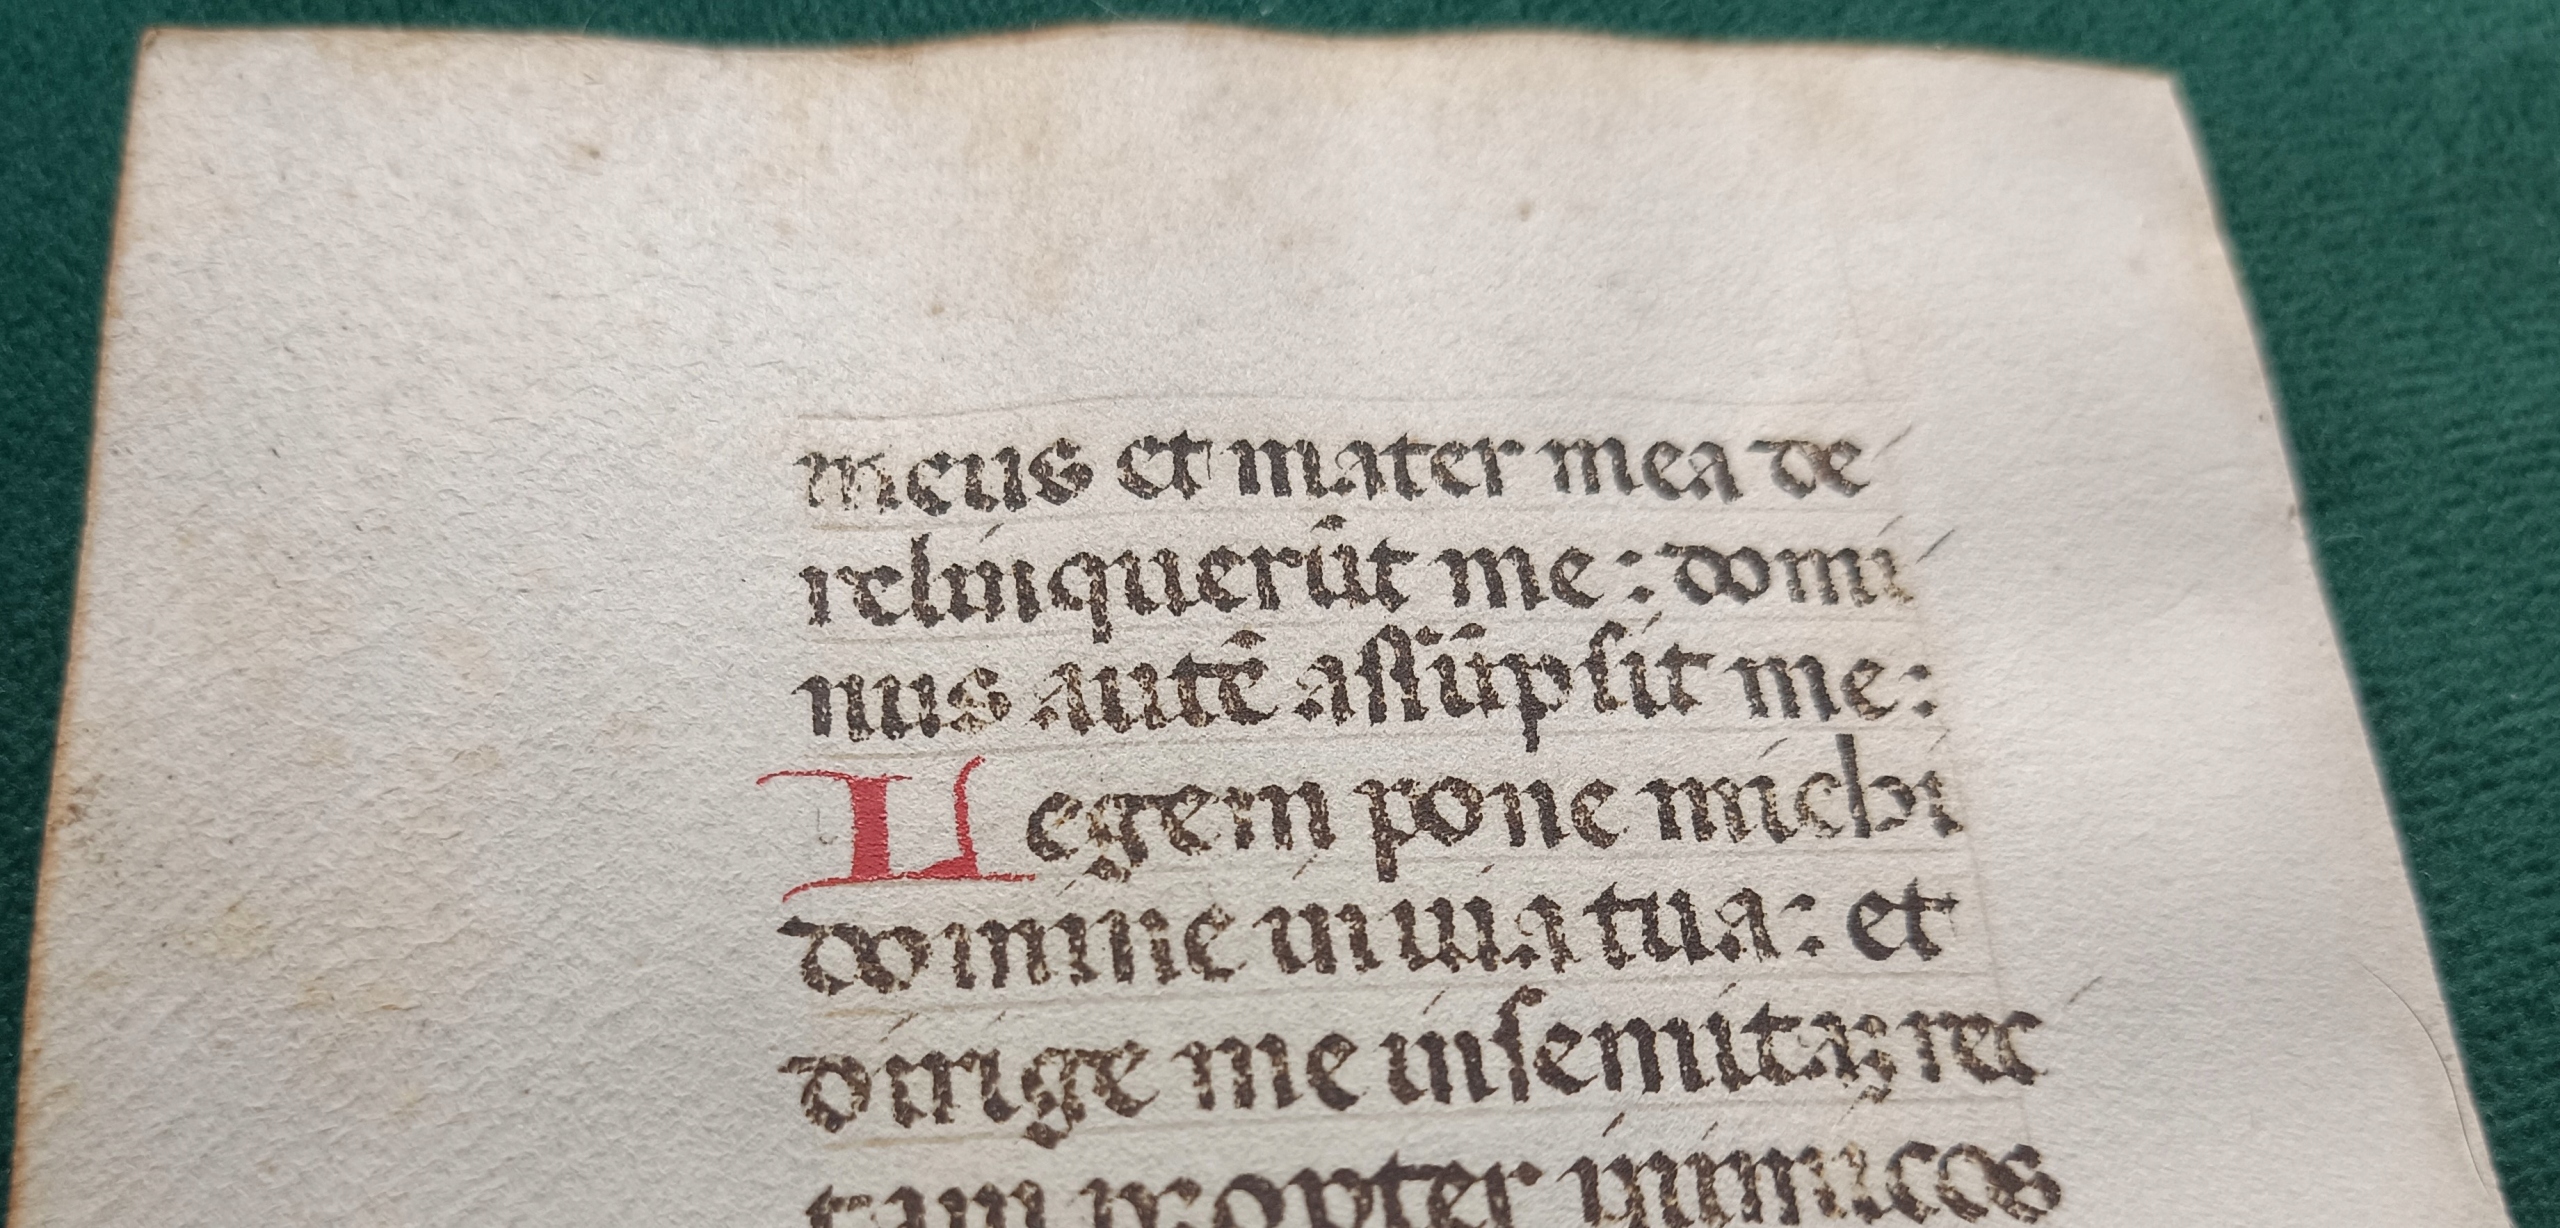 meus et mater mea de
relinquerūt me: domi
nus autē assūpsit me:
Legem pone michi
domine in uia tua: et
dirige me in semitaʒ rec
tam propter inimicos